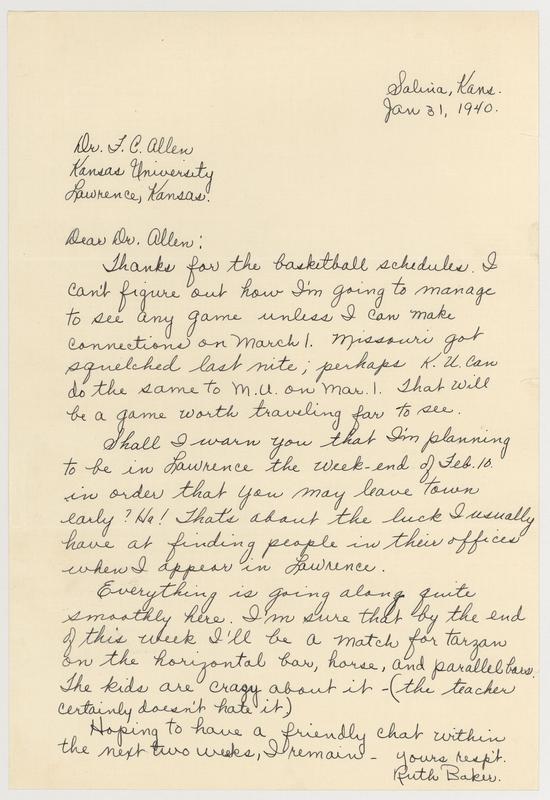 Salina, Kans.
Jan 31, 1940.
Dr. F. C. Allen
Kansas University
Lawrence, Kansas.
Dear Dr. Allen:
Thanks for the basketball schedules. I
can't figure out how I'm going to manage
to see any game unless I can make
connections on March 1. Missouri got
squelched last nite; perhaps K. U. can
do the same to M.U. on Mar. 1. That will
be a game worth traveling far to see.
Shall I warn you that I'm planning
to be in Lawrence the week-end of Feb. 10.
in order that you may leave town
early? Ha! That's about the luck I usually
have at finding people in their offices
when I appear in Lawrence.
Everything is going along quite
smoothly here. I'm sure that by the end
of this week I'll be a match for tarzan
on the horizontal bar, horse, and parallel bars.
The kids are crazy about it - (the teacher
certainly doesn't hate it)
Hoping to have a friendly chat within
the next two weeks, I remain - yours resp't.
Ruth Baker.